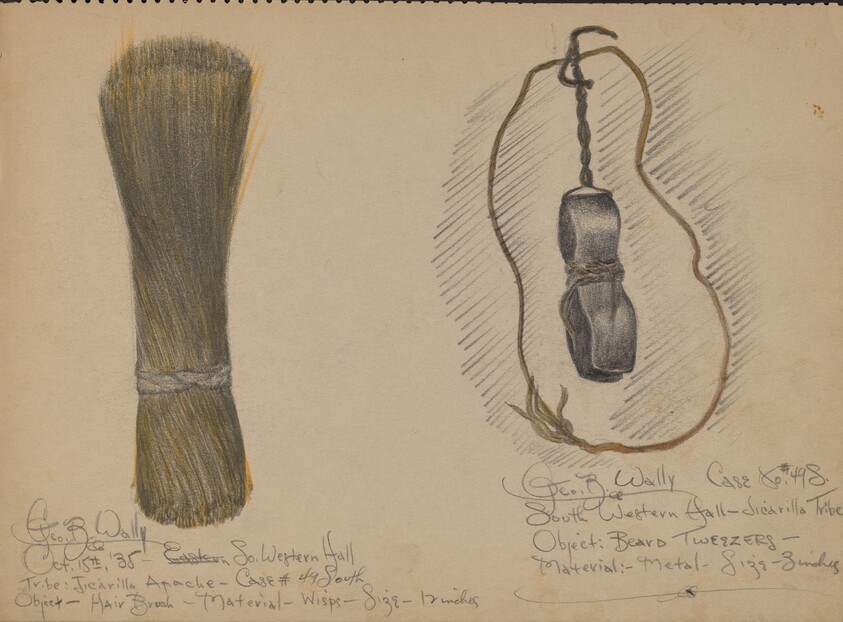 Geo. R. Wally
Oct. 15th, '35 - Eastern So. Western Hall
Tribe: Jicarilla Apache - Case # 49 South
Object - Hair Brush - Material - Wisps - Size - 12 inches
Geo. R. Wally Case No. #49 S.
South Western Hall - Jicarilla Tribe
Object: Beard Tweezers -
Material:- Metal - Size - 3 inches